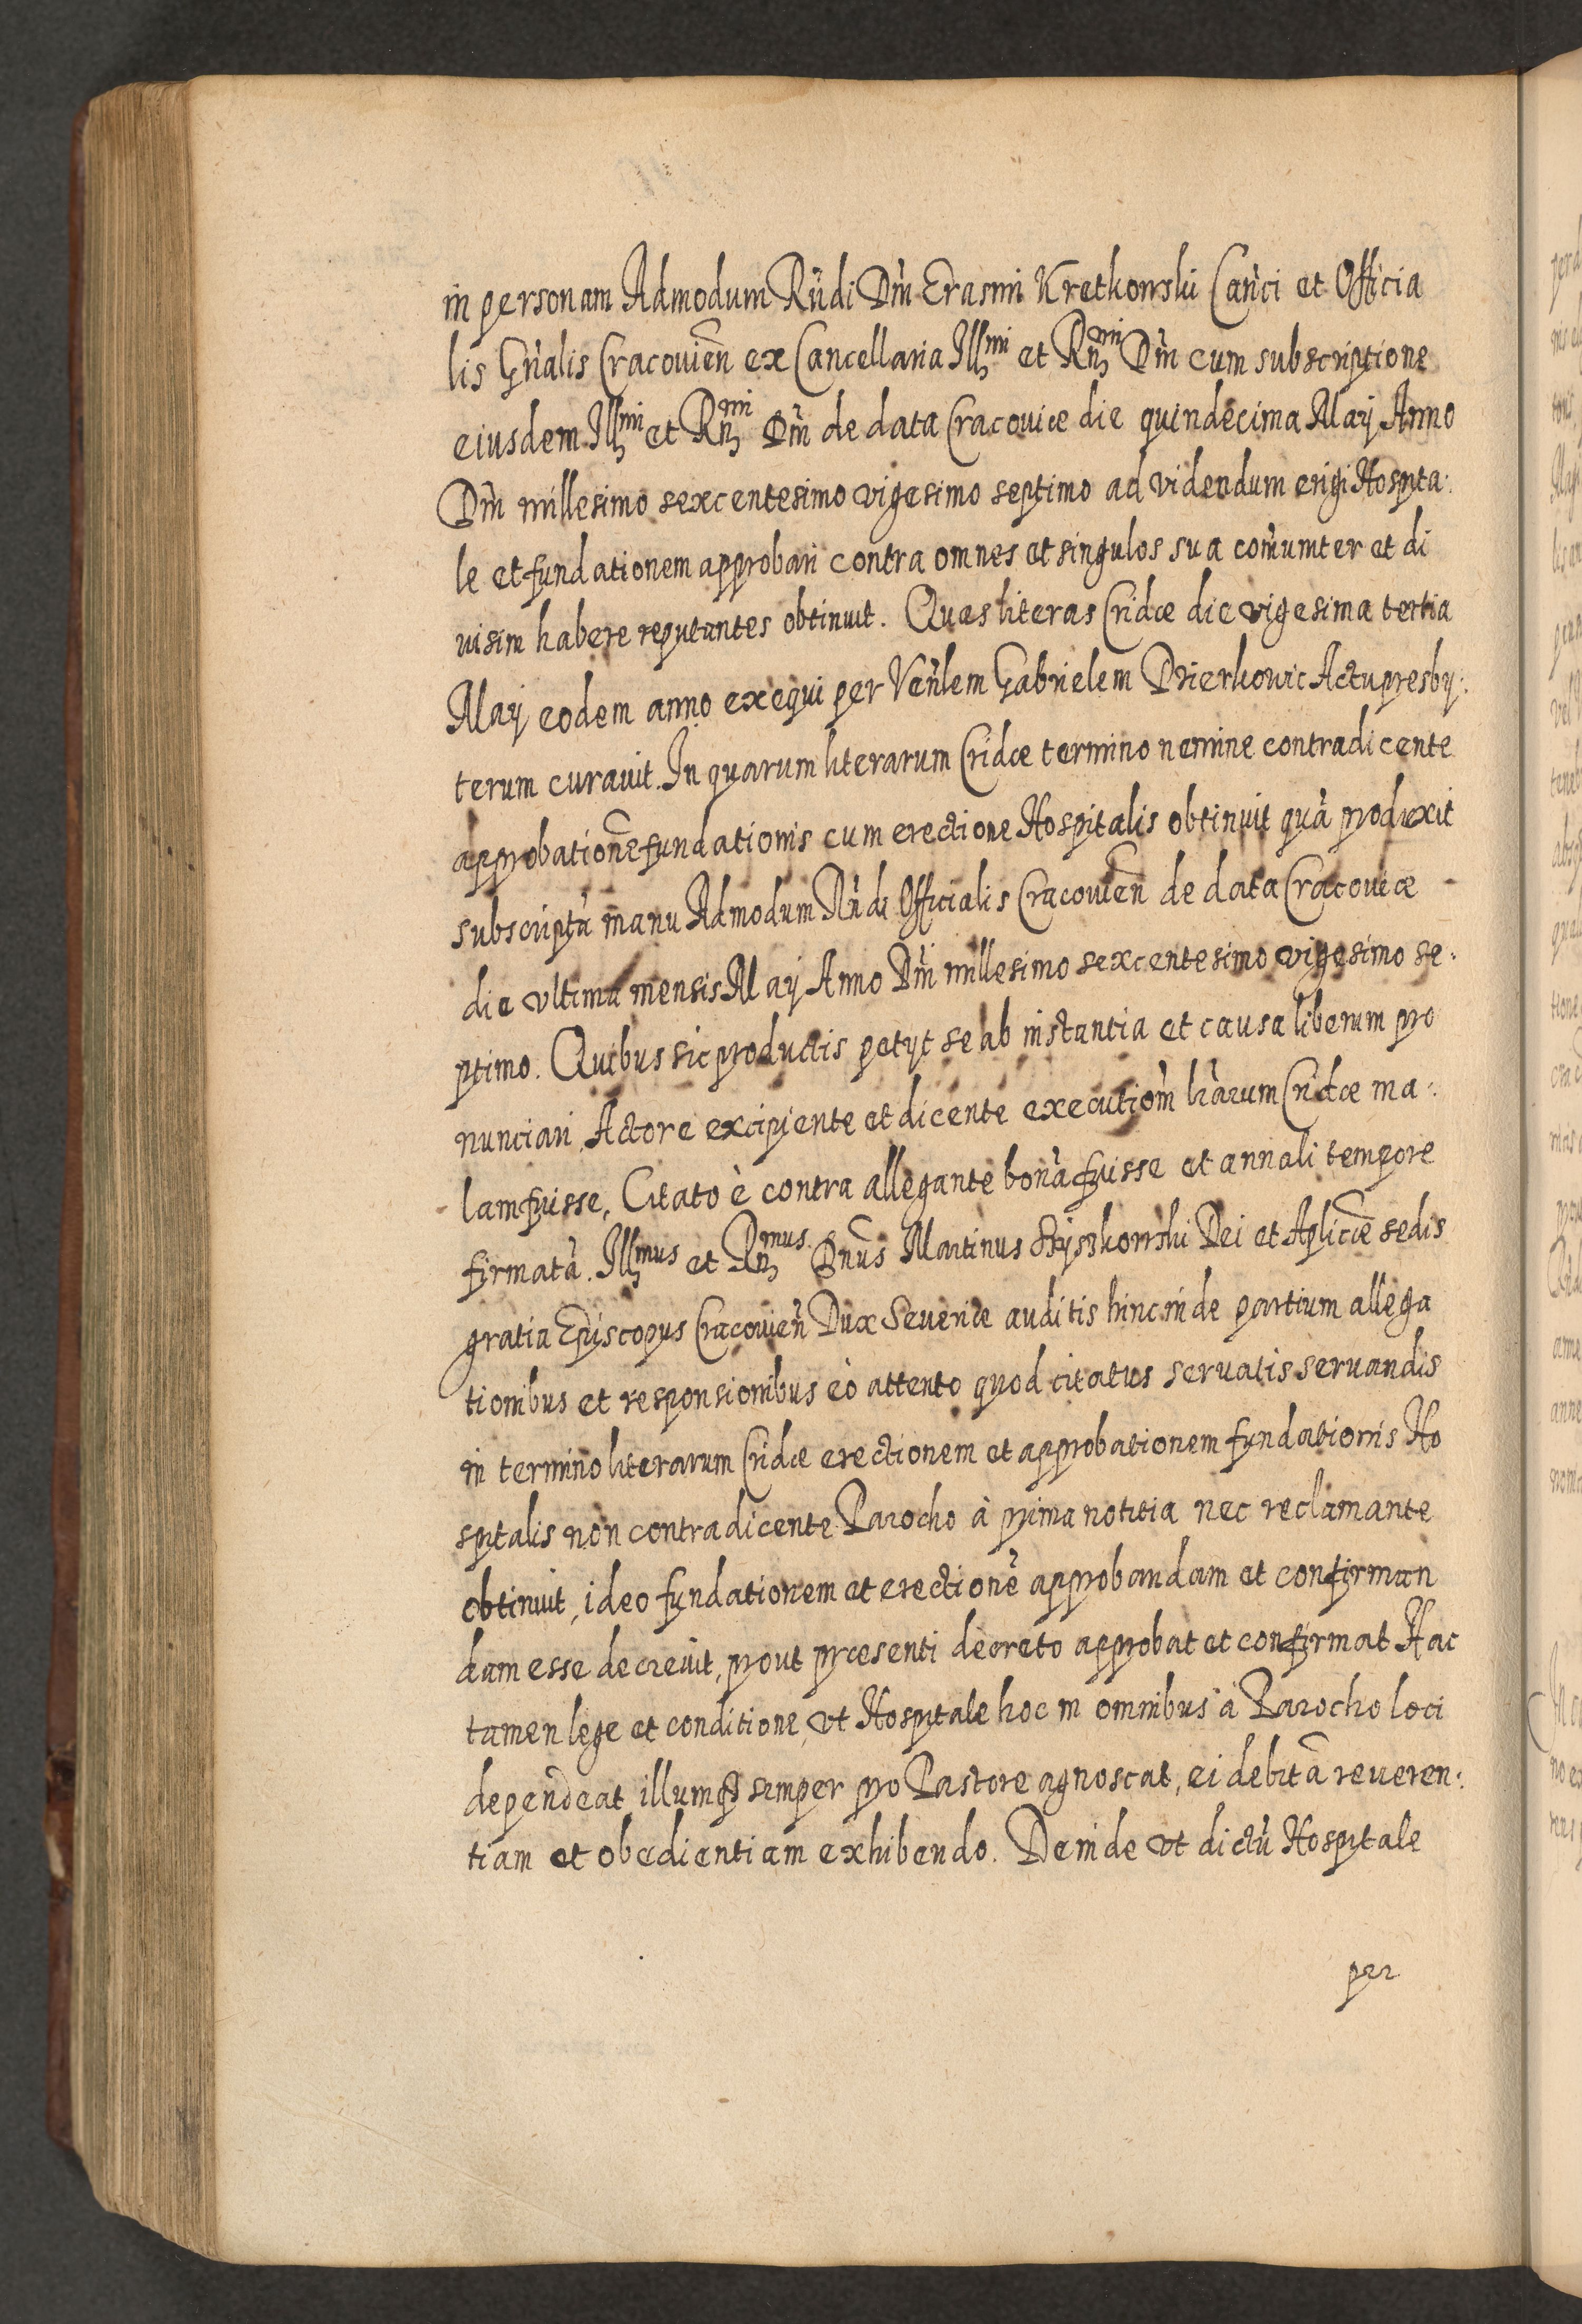 in personam Admodum Rñdi Dñi Erasmi Kretkowski Cañci et Officia
lis Gñalis Cracouien̄ ex Cancellaria Illmi et Rnmi Dñi cum subscriptione
eiusdem Illmi et Rnmi Dñi de data Cracouiæ die quindecima Maij Anno
Dñi millesimo sexcentesimo vigesimo septimo ad videndum erigi Hospita:
le et fundationem approbari contra omnes et singulos sua com̃uniter et di
uisim habere reputantes obtinuit. Quas literas Cridæ die vigesima tertia
Maij eodem anno exequi per Veñlem Gabrielem Dzierkowic Actu presby:
terum curauit. In quarum literarum Cridæ termino nemine contradicente
approbationē fundationis cum erectione Hospitalis obtinuit quā produxit
subscriptā manu Admodum Rñdi Officialis Cracouien̄ de data Cracouiæ
die vltima mensis Maij Anno Dñi millesimo sexcentesimo vigesimo se:
ptimo. Quibus sic productis petijt se ab instantia et causa liberum pro
nunciari. Actore excipiente et dicente executiom̃ lrãrum Cridæ ma:
lam fuisse, Citato è contra allegante bonā fuisse et annali tempore
firmatā. Illmus et Rnmus Dnũs Martinus Szyszkowski Dei et Aplicæ̃ sedis
gratia Episcopus Cracouien̄ Dux Seueriæ auditis hinc inde partium allega
tionibus et responsionibus eò attento quod citatus seruatis seruandis
in termino literarum Cridæ erectionem et approbationem fundationis Ho
spitalis non contradicente Parocho à prima notitia nec reclamante
obtinuit, ideo fundationem et erectionē approbandam et confirman
dam esse decreuit, prout præsenti decreto approbat et confirmat Hac
tamen lege et conditione, vt Hospitale hoc in omnibus à Parocho loci
dependeat illumq3 semper pro Pastore agnoscat, ei debitā reueren:
tiam et obedientiam exhibendo. Deinde vt dictū Hospitale
per